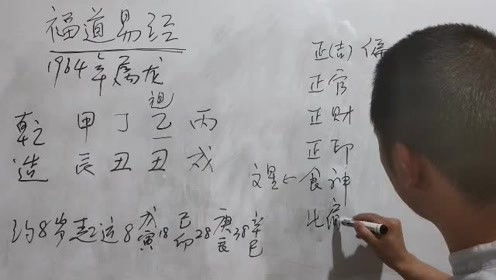 福道易经
1964年属龙
祖
乾 甲 丁 乙 丙
造 辰 丑 丑 戌
约8岁起运8戊寅18己卯28庚辰38辛巳
正(吉)偏
正官
正财
正印
文星←食神
比肩